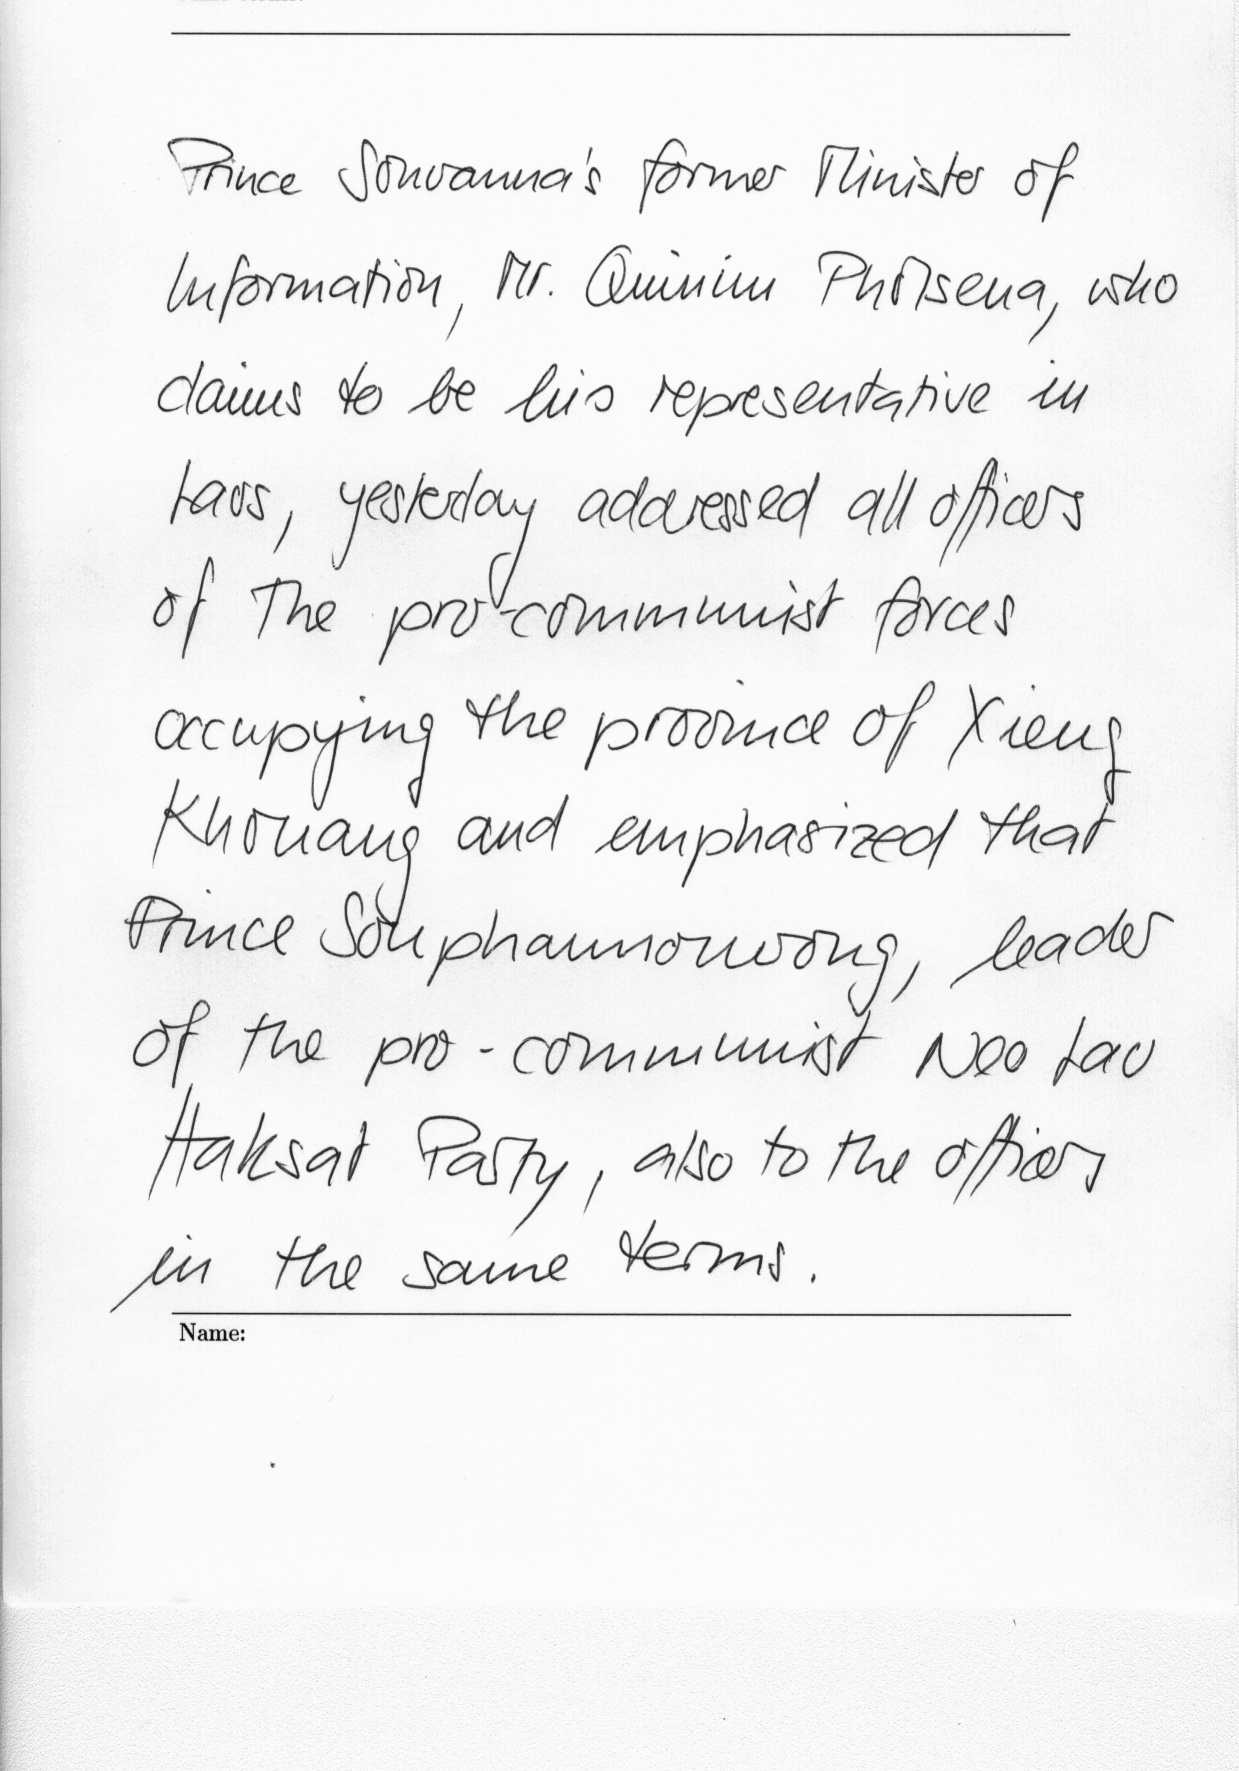 Prince Souvanna's former Minister of
Information, Mr. Quinim Pholsena, who
claims to be his representative in
Laos, yesterday addressed all officers
of the pro-communist forces
occupying the province of Xieng
Khouang and emphasized that
Prince Souphannouvong, leader
of the pro-communist Neo Lao
Haksat Party, also to the officers
in the same terms.
Name: